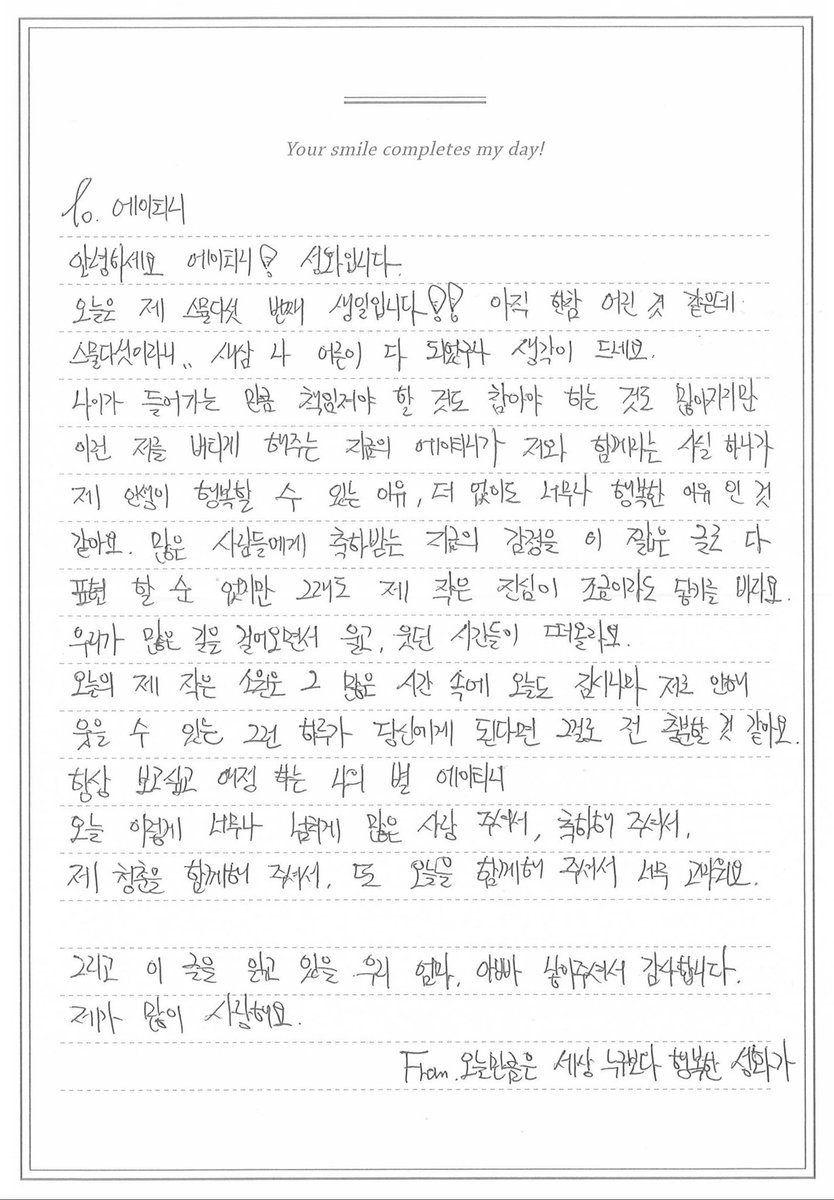 Your smile completes my day!
To. 에이티니
안녕하세요 에이티니! 성화입니다.
오늘은 제 스물다섯 번째 생일입니다!! 아직 한참 어린 것 같은데
스물다섯이라니.. 새삼 나 어른이 다 되었구나 생각이 드네요.
나이가 들어가는 만큼 책임져야 할 것도 참아야 하는 것도 많아지지만
이런 저를 버티게 해주는 지금의 에이티니가 저와 함께라는 사실 하나가
제 인생이 행복할 수 있는 이유, 더 없이도 너무나 행복한 이유 인 것
같아요. 많은 사람들에게 축하받는 지금의 감정을 이 짧은 글로 다
표현 할 순 없지만 그래도 제 작은 진심이 조금이라도 닿기를 바라요.
우리가 많은 길을 걸어오면서 울고, 웃던 시간들이 떠올라요.
오늘의 제 작은 소원은 그 많은 시간 속에 오늘도 잠시나마 저로 인해
웃을 수 있는 그런 하루가 당신에게 된다면 그걸로 전 충분할 것 같아요.
항상 보고싶고 애정 하는 나의 별 에이티니
오늘 이렇게 너무나 넘치게 많은 사랑 주셔서, 축하해 주셔서,
제 청춘을 함께해 주셔서, 또 오늘을 함께해 주셔서 너무 고마워요.
그리고 이 글을 읽고 있을 우리 엄마, 아빠 낳아주셔서 감사합니다.
제가 많이 사랑해요.
From. 오늘만큼은 세상 누구보다 행복한 성화가